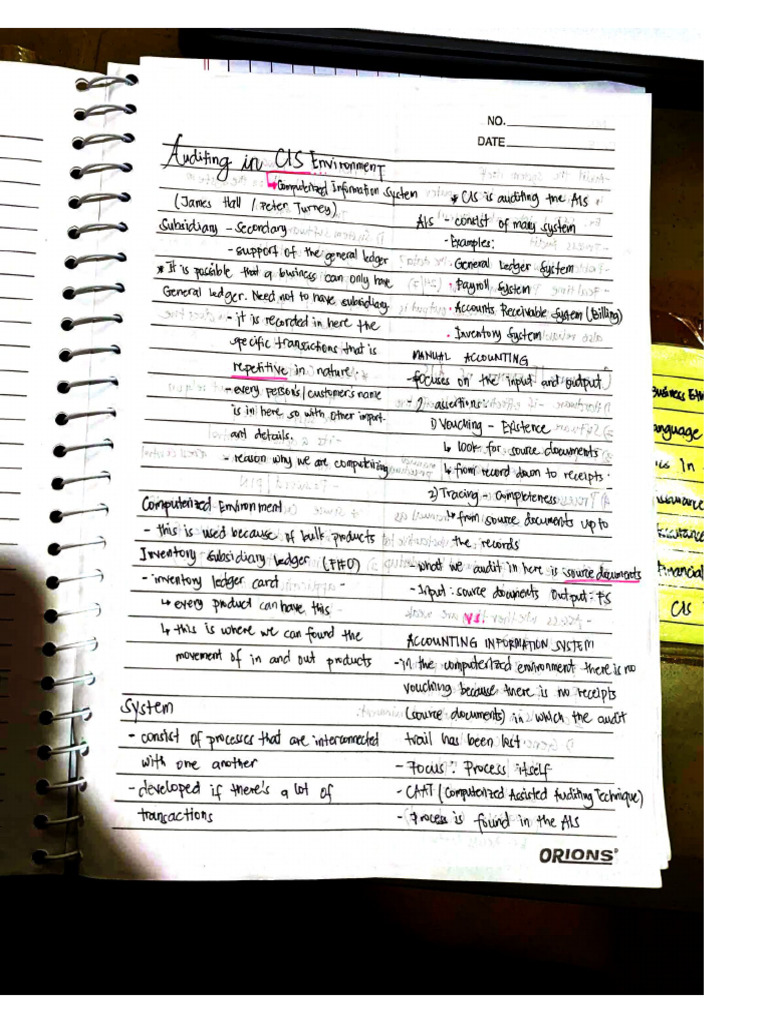 NO.
DATE
Auditing in CIS Environment
Computerized Information System
(James Hall / Peter Turney)
Subsidiary - Secondary
- support of the general ledger
* It is possible that a business can only have
General ledger. Need not to have subsidiary
- it is recorded in here the
specific transactions that is
repetitive in nature.
- every person's / customer's name
is in here, so with other import-
ant details.
- reason why we are computerizing
Computerized Environment
- this is used because of bulk products
Inventory subsidiary ledger (FIFO)
- inventory ledger card
↳ every product can have this
↳ this is where we can found the
movement of in and out products
System
- consist of processes that are interconnected
with one another
- developed if there's a lot of
transactions
* CIS is auditing the AIS
AIS - consist of many system
- Examples:
. General Ledger System
. Payroll System
. Accounts Receivable System (Billing)
. Inventory System
MANUAL ACCOUNTING
- focuses on the input and output
- 2 assertions:
1) Vouching - Existence
↳ look for source documents
↳ from record down to receipts.
2) Tracing - completeness
↳ from source documents up to
the records
- what we audit in here is source documents
- Input: source documents Output: FS
vs.
ACCOUNTING INFORMATION SYSTEM
- in the computerized environment there is no
vouching because there is no receipts
(source documents) in which the audit
trail has been lost.
- Focus: Process itself
- CAAT (Computerized Assisted Auditing Technique)
- Process is found in the AIS
ORIONS
Business Eth
anguage
In
Financial
CIS